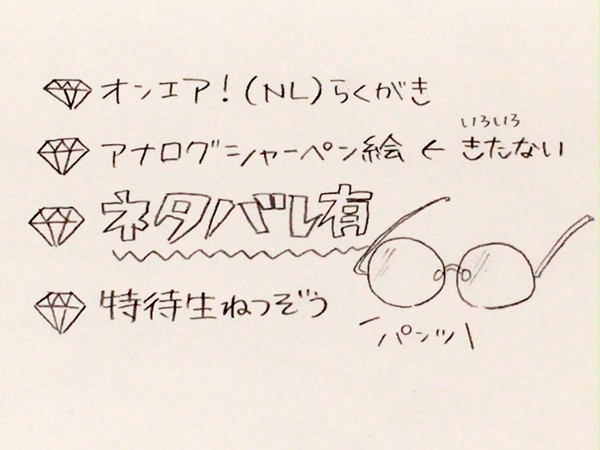 オンエア！(NL)らくがき
アナログシャーペン絵 ← きたない
いろいろ
ネタバレ有
特待生ねつぞう
パンツ